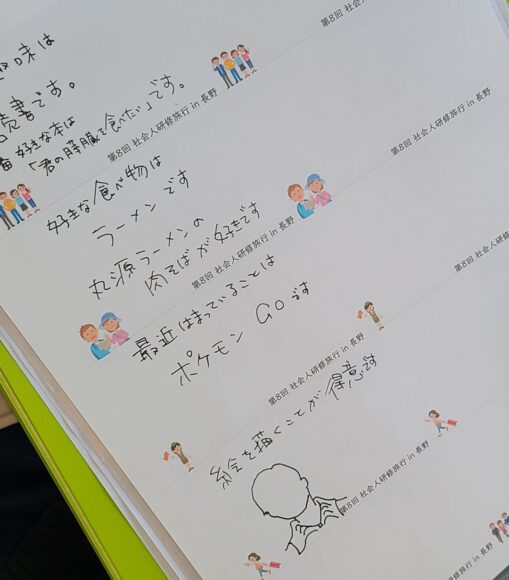 第8回 社会人研修旅行 in 長野
趣味は
読書です。
番好きな本は
「君の膵臓を食べたい」です。
第8回 社会人研修旅行 in 長野
第8回 社会人研修旅行 in 長野
好きな食べ物は
ラーメンです
丸源ラーメンの
肉そばが好きです
第8回 社会人研修旅行 in 長野
第8回 社会人研修旅行 in
最近はまっていることは
ポケモン GOです
第8回 社会人研修旅行 in 長野
絵を描くことが得意です
第8回 社会人研修旅行 in 長野
社会人研修旅行 in 長野